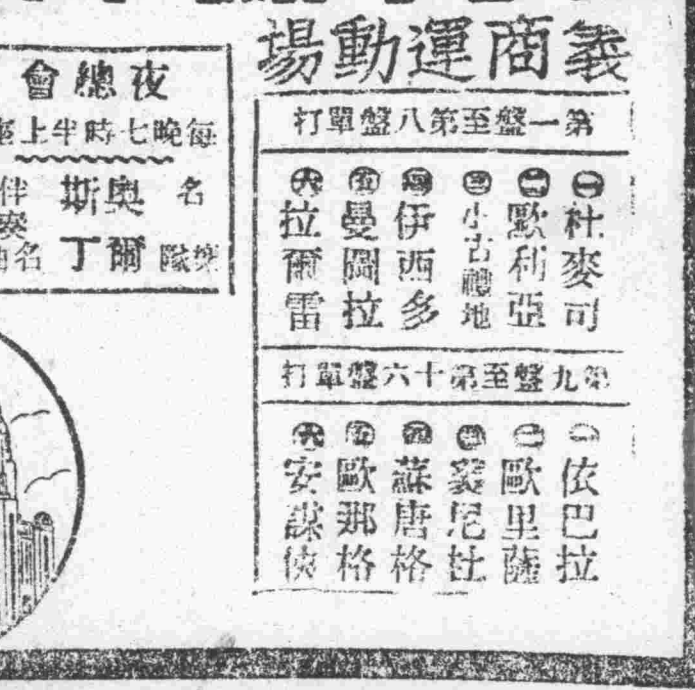 義商運動場
第一盤至第八盤單打
㊀杜麥司
㊁歐利亞
㊂小古禮地
㊃伊西多
㊄曼圖拉
㊅拉爾雷
第九盤至第十六盤單打
㊀依巴拉
㊁歐里薩
㊂裘尼杜
㊃蘇唐格
㊄歐那格
㊅安謀俠
夜總會
每晚七時半上
名
樂隊
奧爾
斯丁
伴奏
名